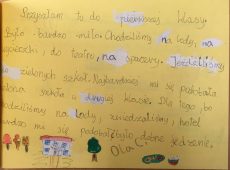 Przyszłam tu do pierwszej klasy.
Było bardzo miło. Chodziliśmy na lody, na
, do teatru, na spacery. Jeździliśmy
do zielonych szkół. Najbardziej mi się podobała
zielona szkoła w drugiej klasie. Dla tego, bo
chodziliśmy na lody, zwiedzaliśmy, hotel
bardzo mi się podobał było dobre jedzenie.
Ola C.